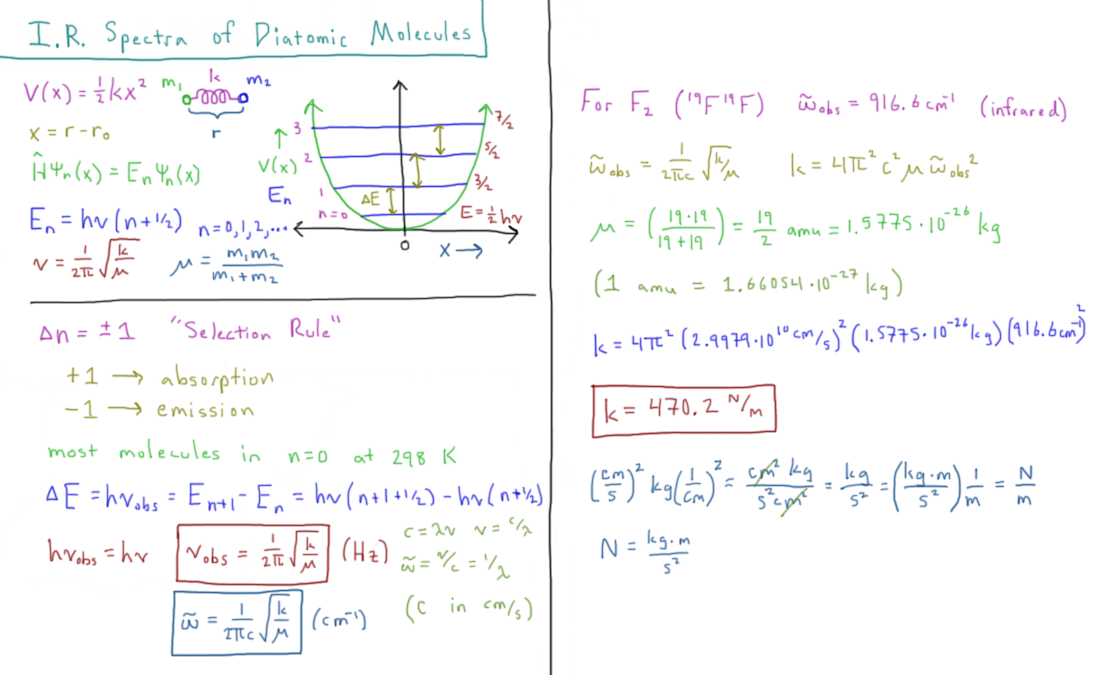 I.R. Spectra of Diatomic Molecules
V(x) = ½kx²
m₁ k m₂
r
x = r - r₀
Ĥψₙ(x) = Eₙψₙ(x)
Eₙ = hν(n+½) n=0,1,2,...
ν = 1/2π √(k/μ) μ = m₁m₂/(m₁+m₂)
↑ 3 7/2
V(x) 2 5/2
Eₙ 1 ΔE 3/2
n=0 E=½hν
0 x →
Δn = ±1 "Selection Rule"
+1 → absorption
-1 → emission
most molecules in n=0 at 298 K
ΔE = hν_obs = Eₙ₊₁ - Eₙ = hν(n+1+½) - hν(n+½)
hν_obs = hν ν_obs = 1/2π √(k/μ) (Hz)
c = λν ν = c/λ
ω̃ = ν/c = 1/λ
ω̃ = 1/2πc √(k/μ) (cm⁻¹) (c in cm/s)
For F₂ (¹⁹F¹⁹F) ω̃_obs = 916.6 cm⁻¹ (infrared)
ω̃_obs = 1/2πc √(k/μ) k = 4π²c²μω̃_obs²
μ = (19·19/19+19) = 19/2 amu = 1.5775·10⁻²⁶ kg
(1 amu = 1.66054·10⁻²⁷ kg)
k = 4π² (2.9979·10¹⁰ cm/s)² (1.5775·10⁻²⁶ kg) (916.6 cm⁻¹)²
k = 470.2 N/m
(cm/s)² kg (1/cm)² = cm² kg/s² cm² = kg/s² = (kg·m/s²) 1/m = N/m
N = kg·m/s²